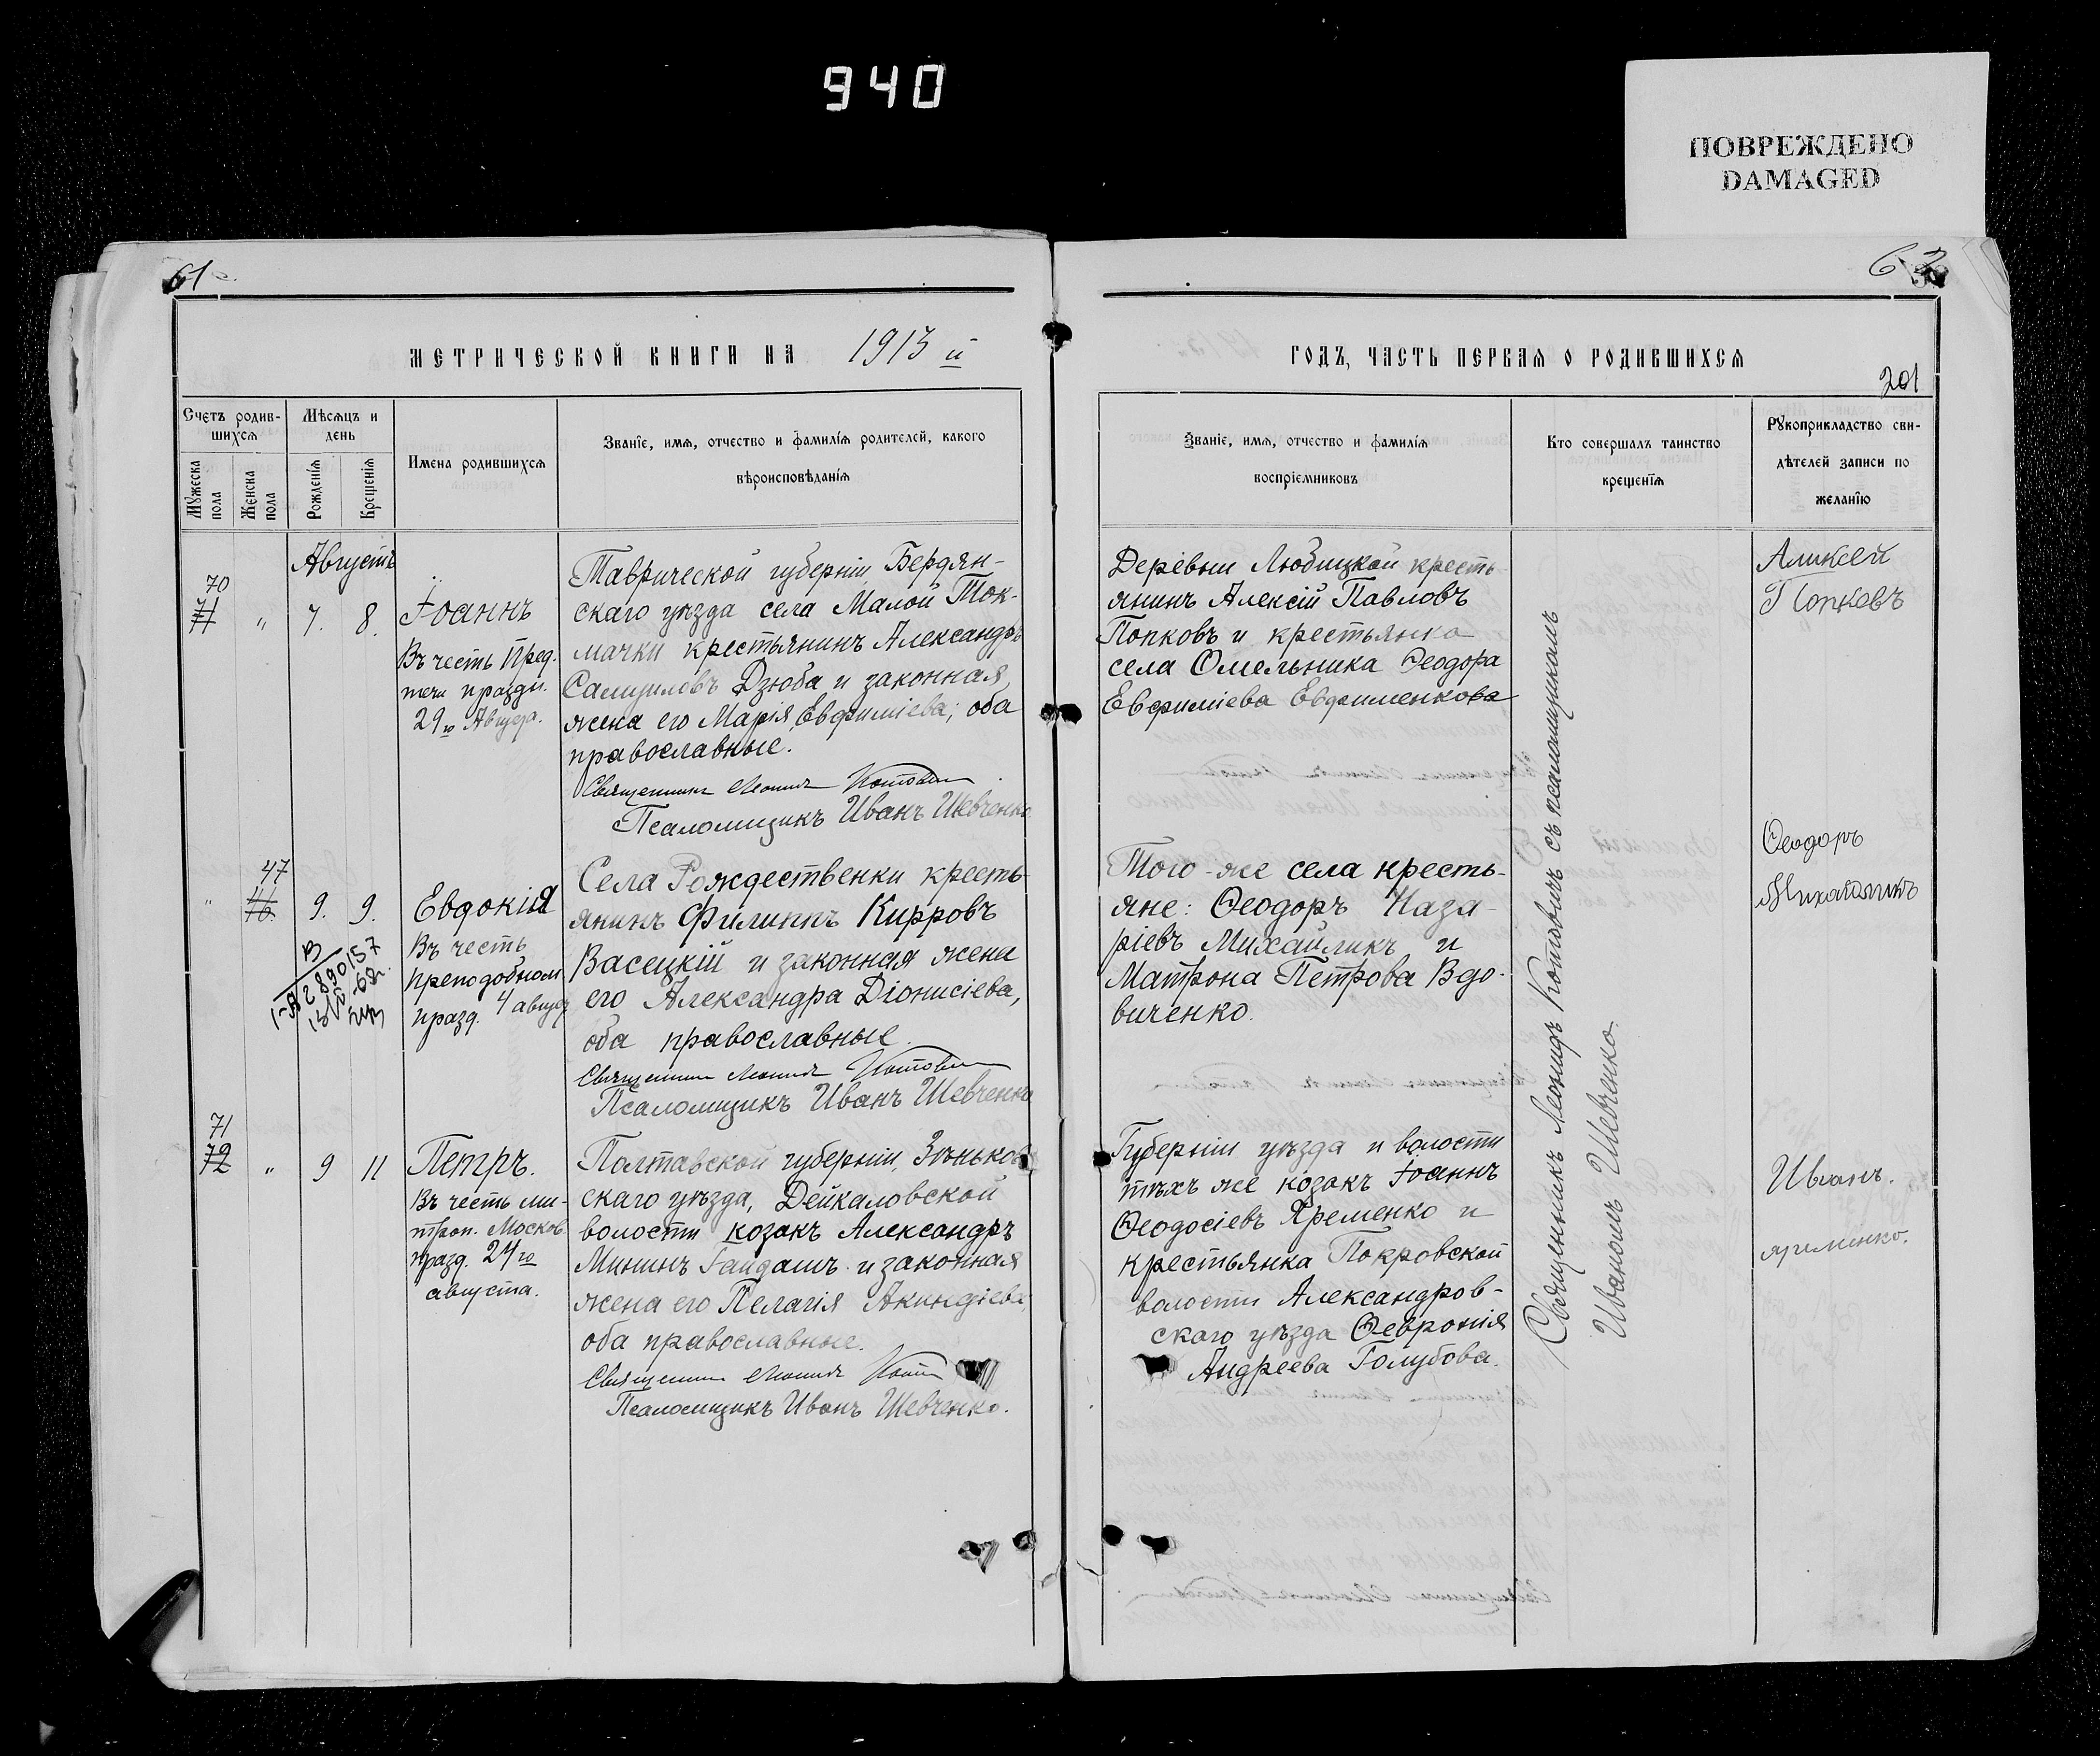 940
ПОВРЕЖДЕНО
DAMAGED
61
62
МЕТРИЧЕСКОЙ КНИГИ НА 1913 й
ГОДЪ, ЧАСТЬ ПЕРВАЯ О РОДИВШИХСЯ
201
Счетъ родив-
шихся
Мужеска
пола
Женска
пола
Мѣсяцъ и
день
Рожденія
Крещенія
Имена родившихся
Званіе, имя, отчество и фамилія родителей, какого
вѣроисповѣданія
Званіе, имя, отчество и фамилія
воспріемниковъ
Кто совершалъ таинство
крещенія
Рукоприкладство сви-
дѣтелей записи по
желанію
Августъ
70
71 " 7. 8.
Іоаннъ
Въ честь Пред-
течи праздн.
29го Августа.
Таврической губерніи, Бердян-
скаго уѣзда села Малой Ток-
мачки крестьянинъ Александръ
Самуиловъ Дзюба и законная
жена его Марія Евфиміева; оба
православные.
Священникъ Леонидъ Котовичъ
Псаломщикъ Иванъ Шевченко
Деревни Любицкой кресть-
янинъ Алексій Павловъ
Попковъ и крестьянка
села Омельника Ѳеодора
Евфиміева Евфименкова
Аликсей
Попковъ
47
" 9. 9.
Евдокія
Въ честь
преподобном.
празд. 4 август
Села Рождественки кресть-
янинъ Филиппъ Кирровъ
Васецкій и законная жена
его Александра Діонисіева,
оба православные.
Священникъ Леонидъ Котовичъ
Псаломщикъ Иванъ Шевченко
Того-же села кресть-
яне: Ѳеодоръ Наза-
ріевъ Михайликъ и
Матрона Петрова Вдо-
виченко.
Ѳеодоръ
Михайликъ
71
72 " 9 11
Петръ.
Въ честь ми-
троп. Москов.
празд. 24го
августа.
Полтавской губерніи, Зѣньков-
скаго уѣзда, Дейкаловской
волости козакъ Александръ
Мининъ Гайдашъ и законная
жена его Пелагія Акиндіева
оба православные.
Священникъ Леонидъ
Псаломщикъ Иванъ Шевченко.
Губерніи уѣзда и волости
тѣхъ же козакъ Іоаннъ
Ѳеодосіевъ Яременко и
крестьянка Покровской
волости Александров-
скаго уѣзда Ѳевронія
Андреева Голубова.
Иванъ.
Яременко.
Священникъ Леонидъ Котовичъ съ псаломщикомъ
Иваномъ Шевченко.